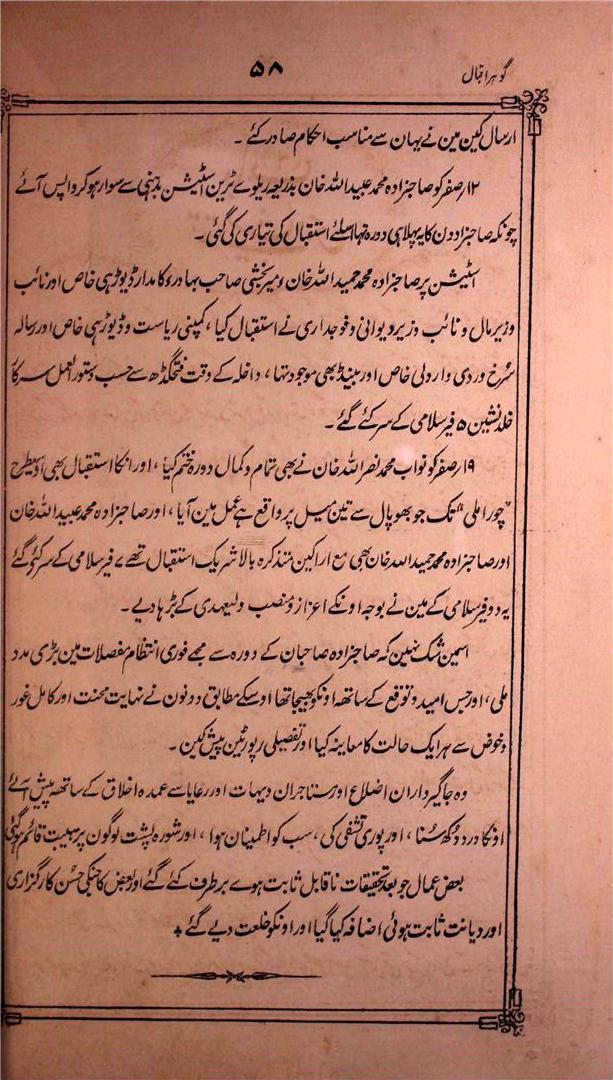 گوہر اقبال
۵۸
ارسال کین مین نے یہان سے مناسب احکام صادر کئے ۔
۱۲ صفر کو صاحبزادہ محمد عبیداللہ خان بذریعہ ریلوے ٹرین اسٹیشن بدہنی سے سوار ہو کر واپس آئے
چونکہ صاحبزادون کا یہ پہلا ہی دورہ تہا اسلئے استقبال کی تیاری کی گئی ۔
اسٹیشن پر صاحبزادہ محمد حمید اللہ خان ، میر بخشی صاحب بہادر کا مدار ڈیوڑہی خاص اور نائب
وزیر مال و نائب وزیر دیوانی و فوجداری نے استقبال کیا ، کمپنی ریاست و ڈیوڑہی خاص اور رسالہ
سُرخ وردی و اردلی خاص اور بینڈ بھی موجود تہا ، داخلہ کے وقت فتحگڈھ سے حسب دستور العمل سرکار
خلد نشین ۵ فیر سلامی کے سر کئے گئے ۔
۱۹ صفر کو نواب محمد نصر اللہ خان نے بھی تمام و کمال دورہ ختم کیا ، اور انکا استقبال بھی اوسیطرح
"چور املی" تک جو بھوپال سے تین میل پر واقع ہے عمل مین آیا ، اور صاحبزادہ محمد عبیداللہ خان
اور صاحبزادہ محمد حمید اللہ خان بھی مع اراکین متذکرہ بالا شریک استقبال تھے ۷ فیر سلامی کے سر کئے گئے
یہ دو فیر سلامی کے مین نے بوجہ اونکے اعزاز و منصب ولیعہدی کے بڑہا دیے ۔
اسمین شک نہین کہ صاحبزادہ صاحبان کے دورہ سے مجھے فوری انتظام مفصلات مین بڑی مدد
ملی ، اور جس امید و توقع کے ساتھ اونکو بھیجا تھا اوسکے مطابق دونون نے نہایت محنت اور کامل غور
و خوض سے ہر ایک حالت کا معاینہ کیا اور تفصیلی رپورٹین پیش کین ۔
وہ جاگیرداران اضلاع اور مستاجران دیہات اور رعایا سے عمدہ اخلاق کے ساتھ پیش آئے
اونکا درد دُکھ سُنا ، اور پوری تشفی کی ، سب کو اطمینان ہوا ، اور شورہ پشت لوگون پر ہیبت قائم ہوگئی
بعض عمال جو بعد تحقیقات ناقابل ثابت ہوے برطرف کئے گئے اور بعض کا جنکی حُسن کارگزاری
اور دیانت ثابت ہوئی اضافہ کیا گیا اور اونکو خلعت دیے گئے ۔